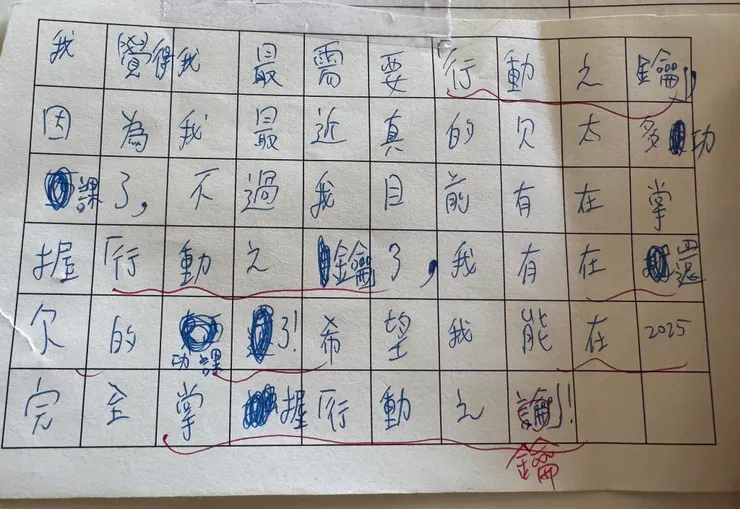 我覺得我最需要「行動之鑰」,
因為我最近真的欠太多功
課了,不過我目前有在掌
握「行動之鑰」了,我有在還
欠的功課了!希望我能在2025
完全掌握「行動之論」!!
鑰